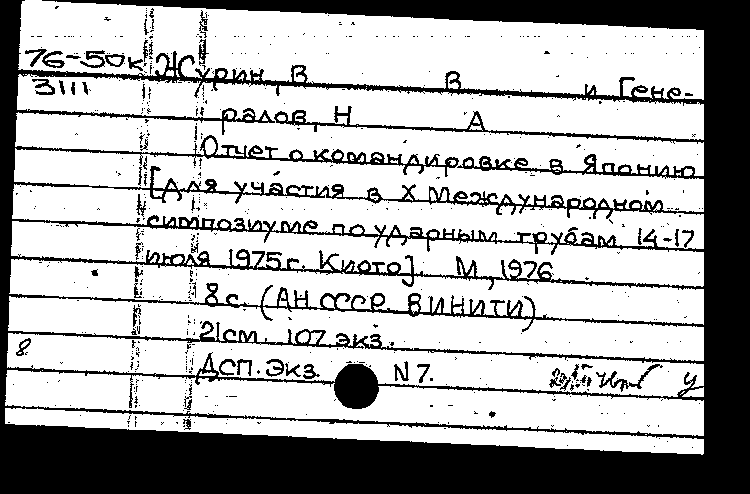 76-50к Журин, В В и Гене-
3111 ралов, Н А
Отчет о командировке в Японию
[для участия в X Международном
симпозиуме по ударным трубам 14-17
июля 1975г. Киото]. М, 1976
8 с. (АН СССР. ВИНИТИ)
21см. 107 экз.
8 ДСП. Экз. N 7. У